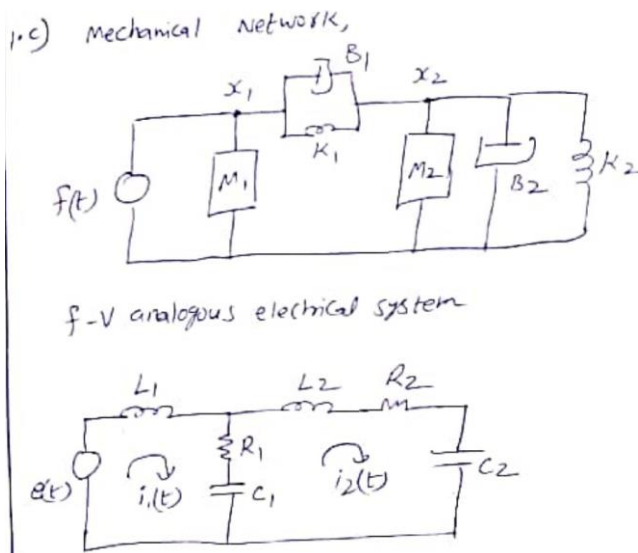 1.c) Mechanical Network,
B1
x1
x2
K1
f(t)
M1
M2
B2
K2
f-V analogous electrical system
L1
L2
R2
R1
e(t)
i1(t)
C1
i2(t)
C2